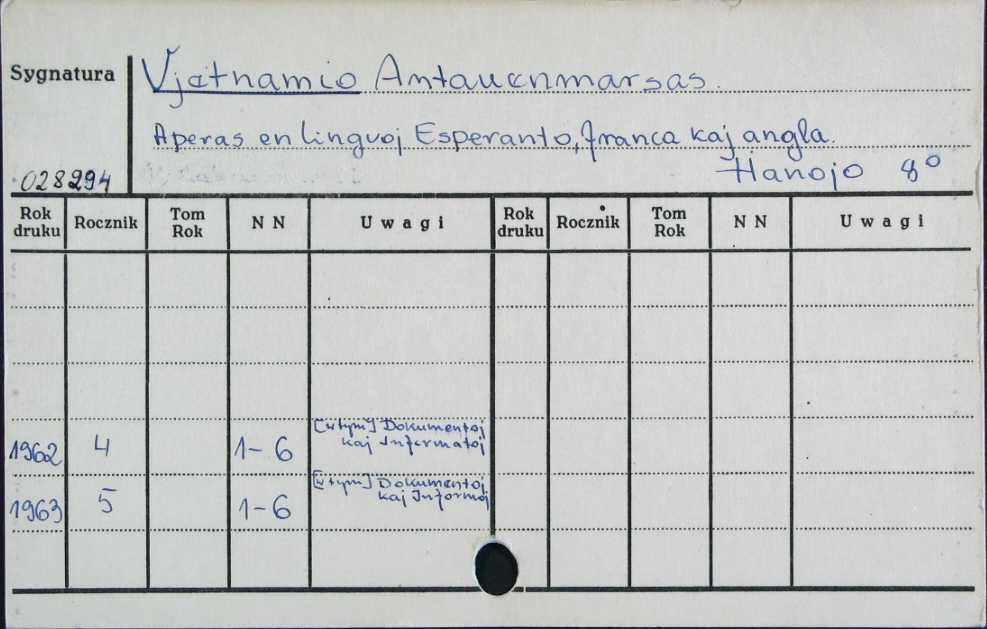 Sygnatura Vjetnamio Antauenmarsas.
Aperas en linguoj Esperanto, franca kaj angla.
028294 Hanojo 8°
Rok druku Rocznik Tom Rok N N Uwagi Rok druku Rocznik Tom Rok N N Uwagi
[w tym] Dokumentoj
1962 4 1-6 kaj Informatoj
[w tym] Dokumentoj
1963 5 1-6 kaj Informoj